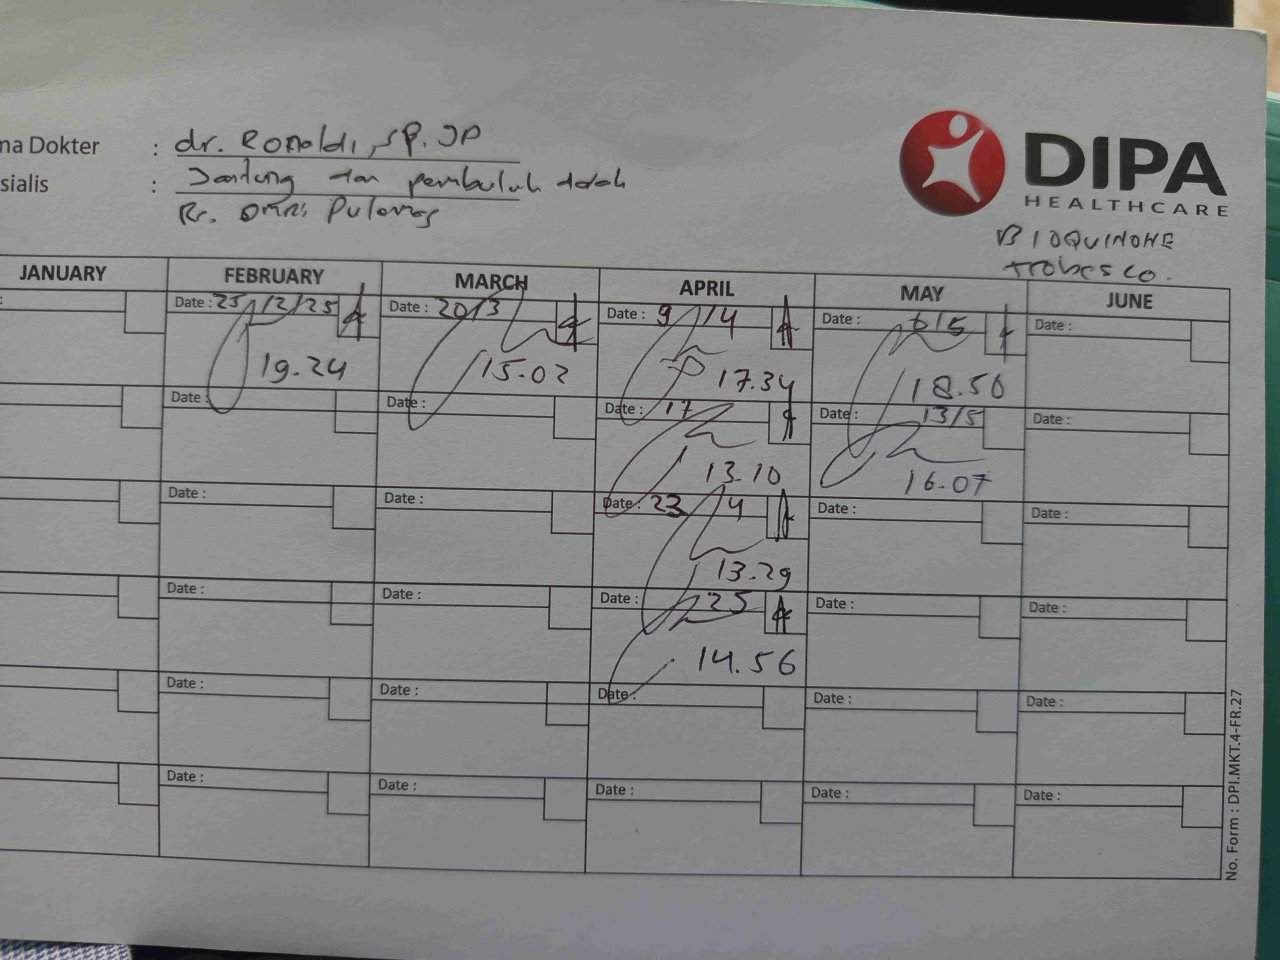 ma Dokter : dr. Ronaldi, SP.JP
sialis : Jantung dan pembuluh darah
Rs. OMNI Pulomas
DIPA
HEALTHCARE
BIOQUINONE
JANUARY FEBRUARY MARCH APRIL MAY JUNE
: Date : 25/2/25 Date : 20/3 Date : 9/4 Date : 6/5 Date :
19.24 15.02 17.34 18.50
Date : Date : Date : 17 Date : 13/5 Date :
13.10 16.07
Date : Date : Date : 23 4 Date : Date :
13.29
Date : Date : Date : 25 Date : Date :
14.56
Date : Date : Date : Date : Date :
Date : Date : Date : Date : Date :
No. Form : DPI.MKT.4-FR.27